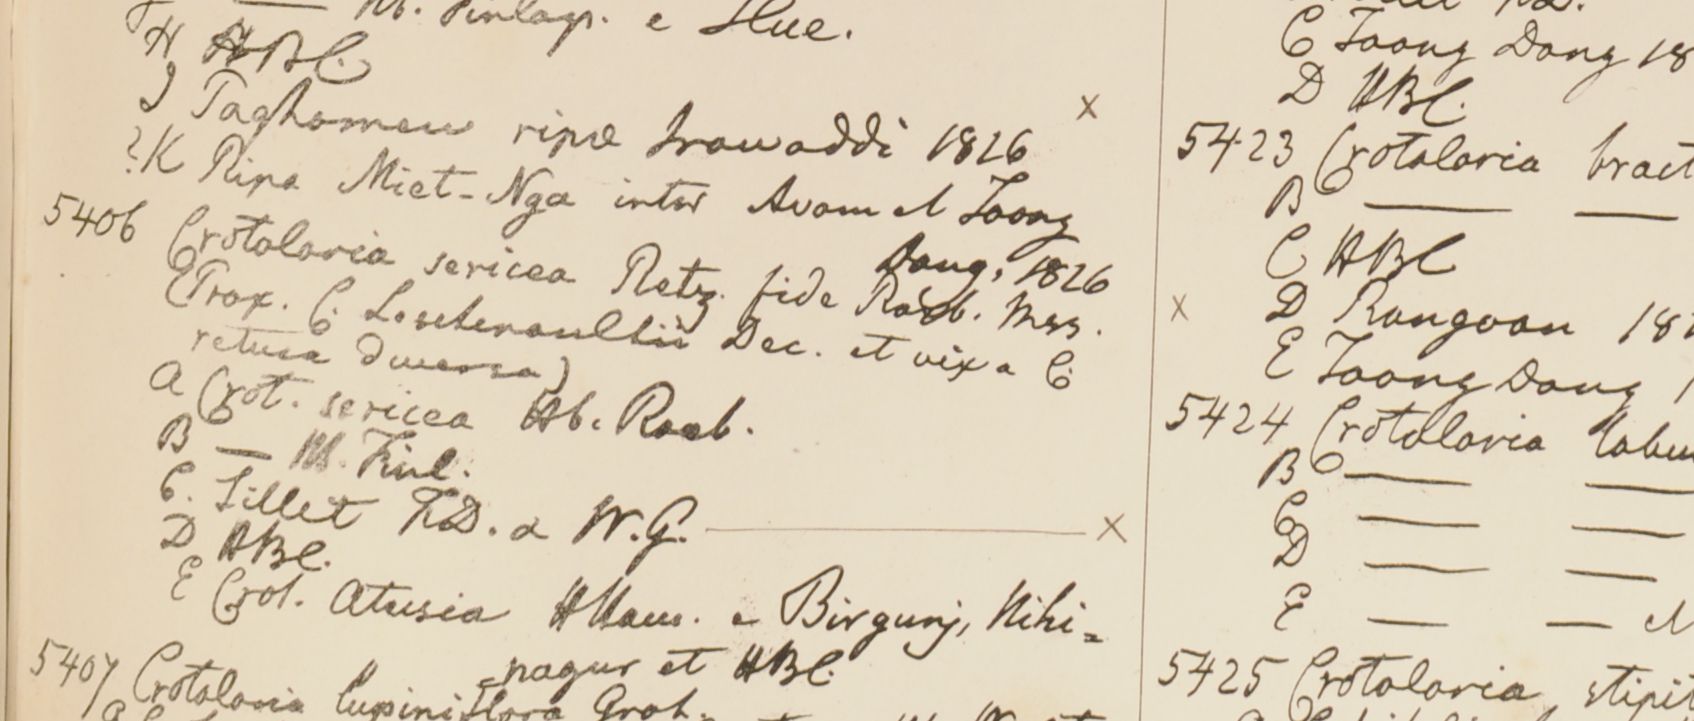 Hb. Finlays. e Hue.
H HBC.
J Taghomeu ripæ Irawaddi 1826 ×
?K Ripa Miet-Nga inter Avam et Taong
Dang, 1826
5406 Crotalaria sericea Retz. fide Roxb. Mss.
(Prox. C. Leschenaultii Dec. et vix a C.
retusa diversa)
A Crot. sericea Hb. Roxb.
B — Hb. Finl.
C. Sillet F.D. & W.G. — ×
D HBC.
E Crot. Atusia HHam. e Birgunj, Nihi-
-nagur et HBC.
5407 Crotalaria lupiniflora Grah.
C Taong Dong 18
D HBC.
5423 Crotalaria bract
B — —
C HBC
× D Rangoon 18
E Taong Dong 1
5424 Crotalaria labu
B — —
C — —
D — —
E — —
5425 Crotalaria stipit